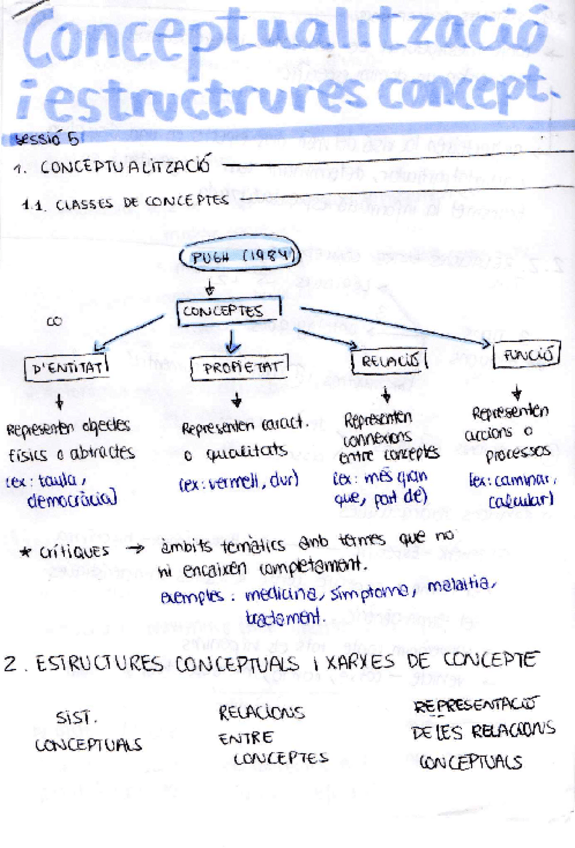 Conceptualització
i estructrures concept.
sessió 5
1. CONCEPTUALITZACIÓ
1.1. CLASSES DE CONCEPTES
PUGH (1984)
CONCEPTES
CO
D'ENTITAT
PROPIETAT
RELACIÓ
FUNCIÓ
Representen objectes
físics o abtractes
(ex: taula,
democràcia)
Representen caract.
o qualitats
(ex: vermell, dur)
Representen
connexions
entre conceptes
(ex: més gran
que, part de)
Representen
accions o
processos
(ex: caminar,
calcular)
* crítiques → àmbits temàtics amb termes que no
hi encaixen completament.
exemples: medicina, símptoma, malaltia,
tractament.
2. ESTRUCTURES CONCEPTUALS I XARXES DE CONCEPTE
SIST.
CONCEPTUALS
RELACIONS
ENTRE
CONCEPTES
REPRESENTACIÓ
DE LES RELACIONS
CONCEPTUALS